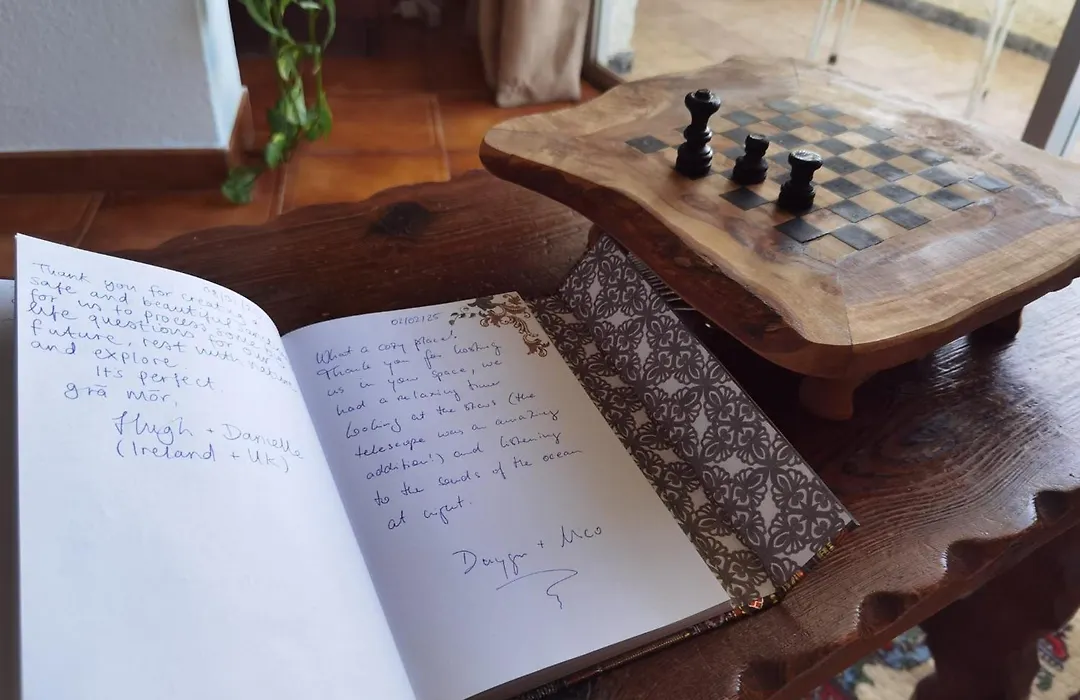 Thank you for
safe and beautiful
for us to process some
life questions for our
future, rest with nature
and explore.
Its perfect
grā mór,
Hugh + Danielle
(Ireland + UK)
02/02/25
What a cozy place!
Thank you for hosting
us in your space, we
had a relaxing time
looking at the stars (the
telescope was an amazing
addition!) and listening
to the sounds of the ocean
at night.